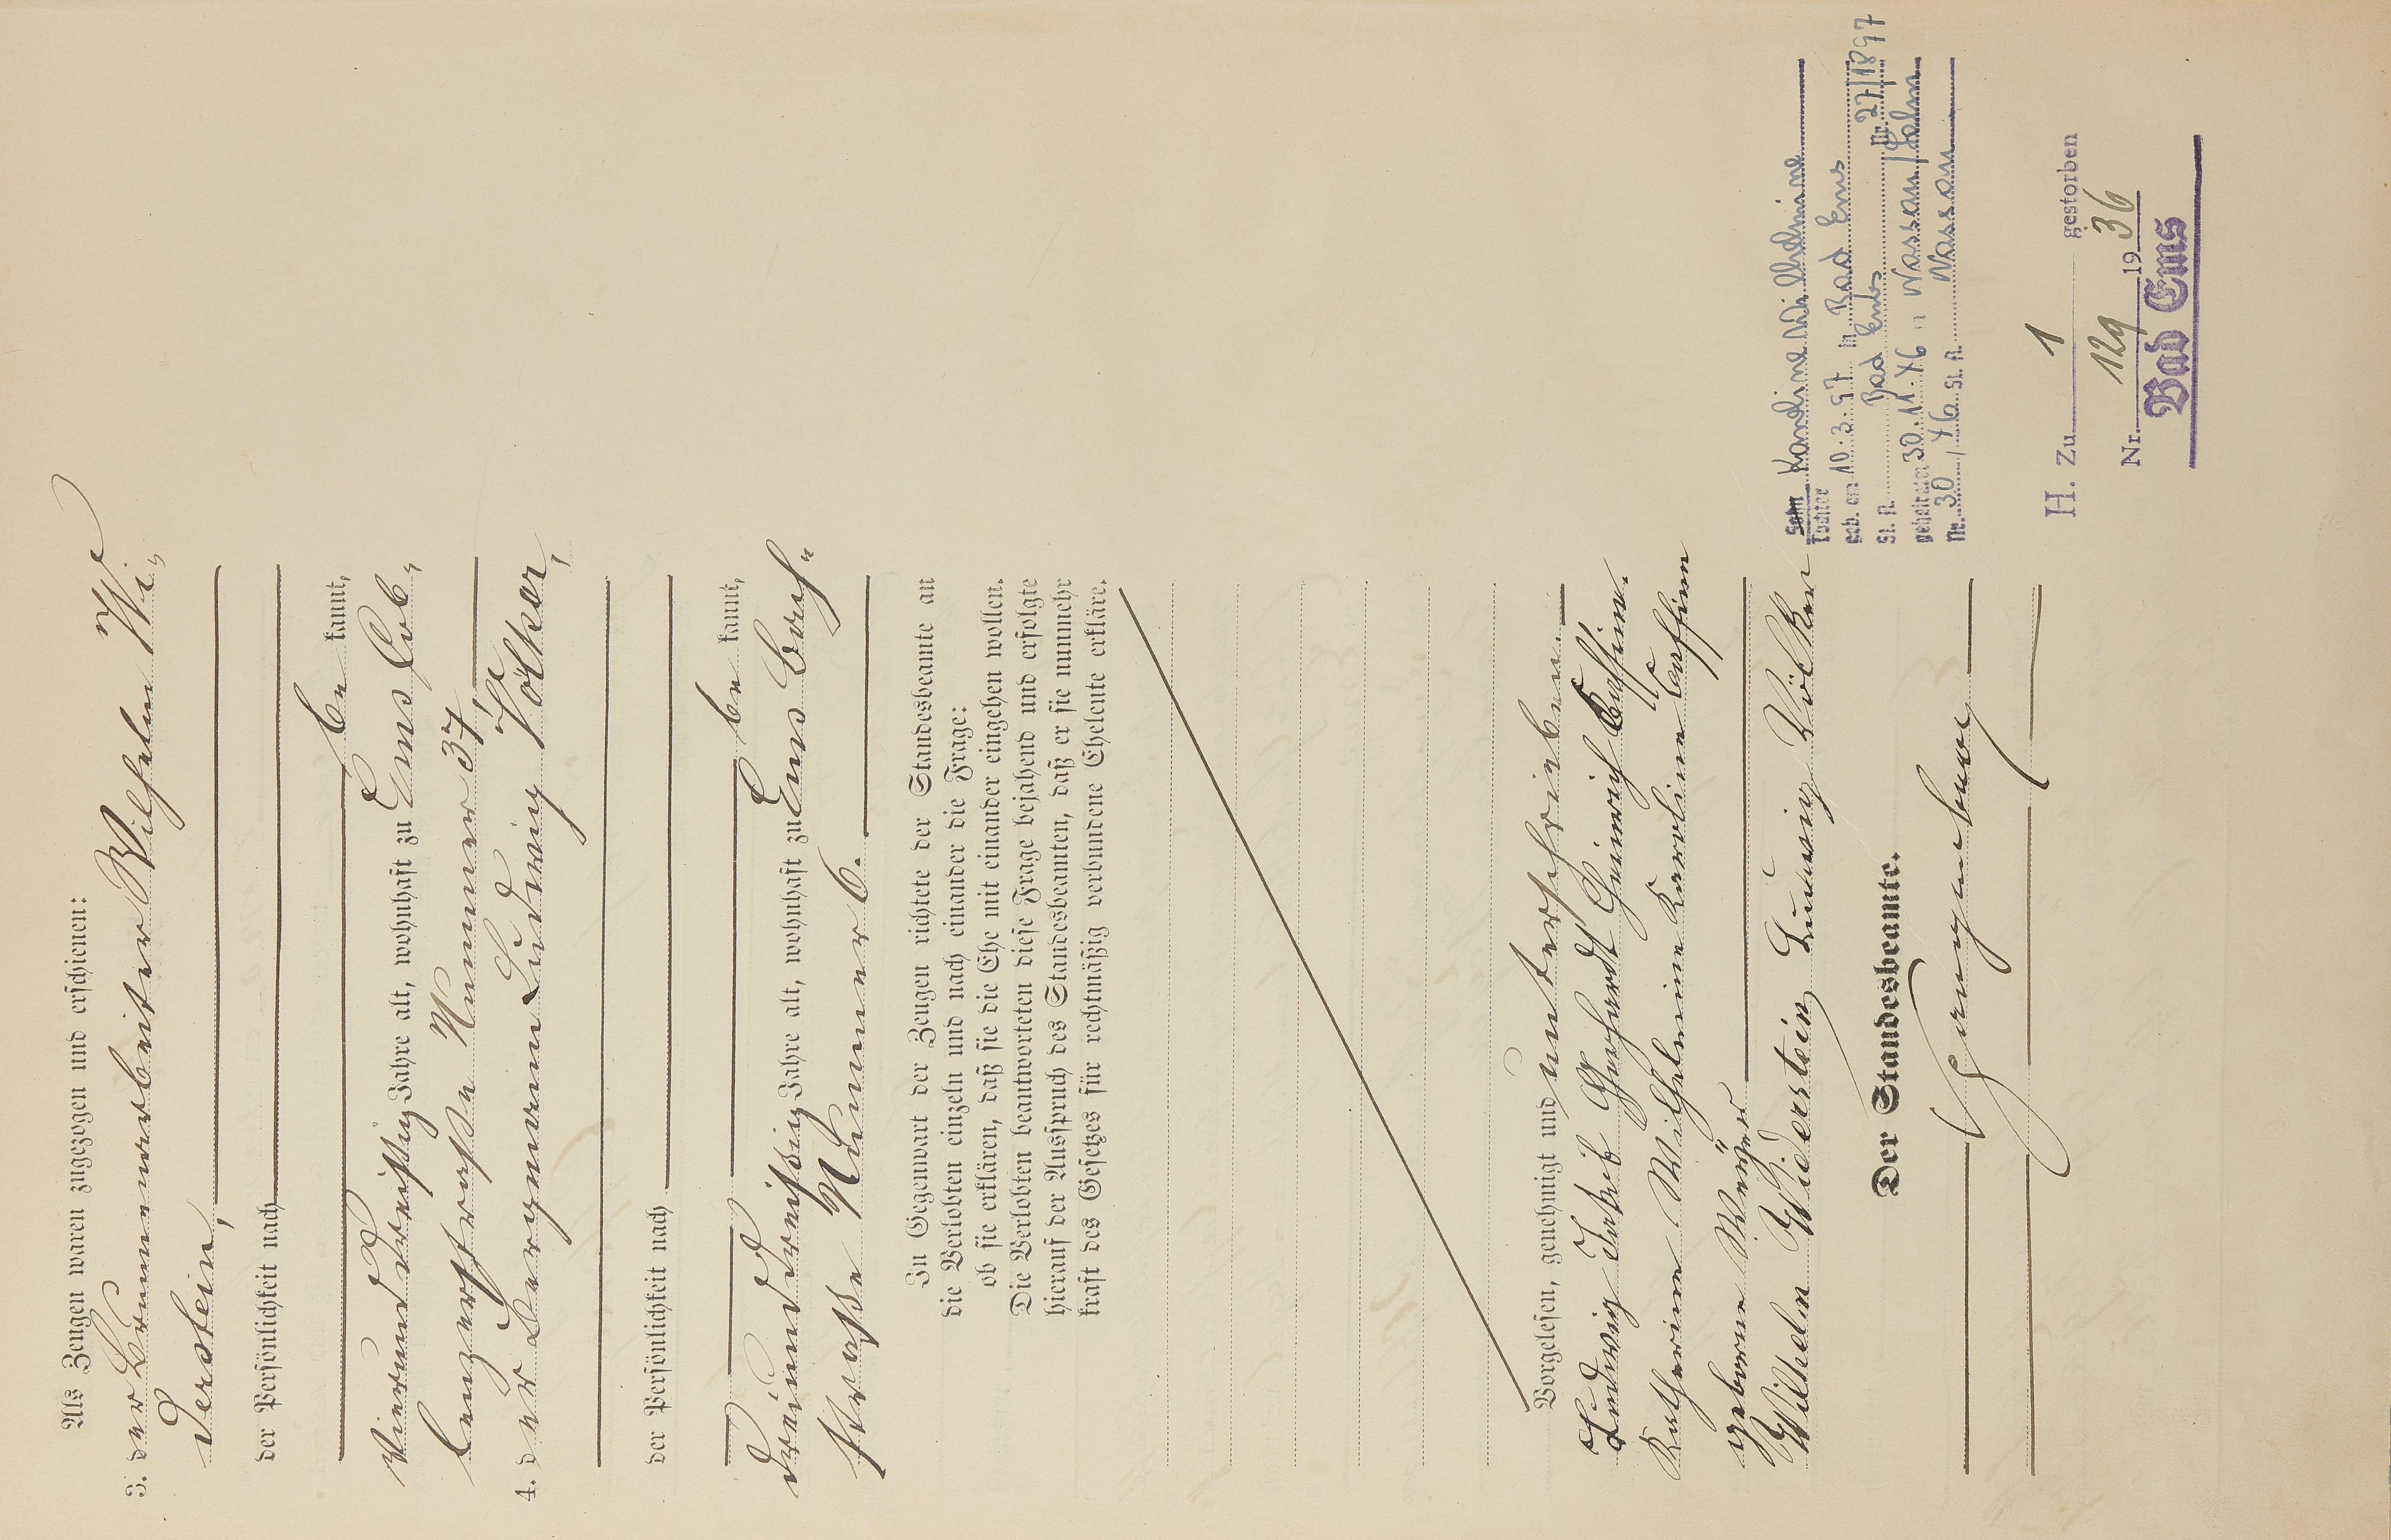 Als Zeugen waren zugezogen und erschienen:
3. der Brunnenarbeiter Wilhelm Wi„
derstein,
der Persönlichkeit nach
be kannt,
vierunddreißig Jahre alt, wohnhaft zu Ems Cob„
lenzerstraße Nummer 37,
4. der Bergmann Ludwig Völker,
der Persönlichkeit nach
be kannt,
dreiunddreißig Jahre alt, wohnhaft zu Ems Bach„
straße Nummer 6.
In Gegenwart der Zeugen richtete der Standesbeamte an
die Verlobten einzeln und nach einander die Frage:
ob sie erklären, daß sie die Ehe mit einander eingehen wollen.
Die Verlobten beantworteten diese Frage bejahend und erfolgte
hierauf der Ausspruch des Standesbeamten, daß er sie nunmehr
kraft des Gesetzes für rechtmäßig verbundene Eheleute erkläre.
Vorgelesen, genehmigt und unterschrieben.
Ludwig Jakob Gerhardt Heinrich
Katherine Wilhelmine Karoline
geborne
Wilhelm Wiederstein, Ludwig Völker
Der Standesbeamte.
Sohn Karoline Wilhelmine
Tochter
geb. am 10.3.97 in Bad Ems
St. A. Bad Ems Nr. 27/1897
geheiratet 30.11.46 in Nassau/Lahn
Nr. 30/46 St. A. Nassau
H. Zu 1 gestorben
Nr. 129 1936
Bad Ems